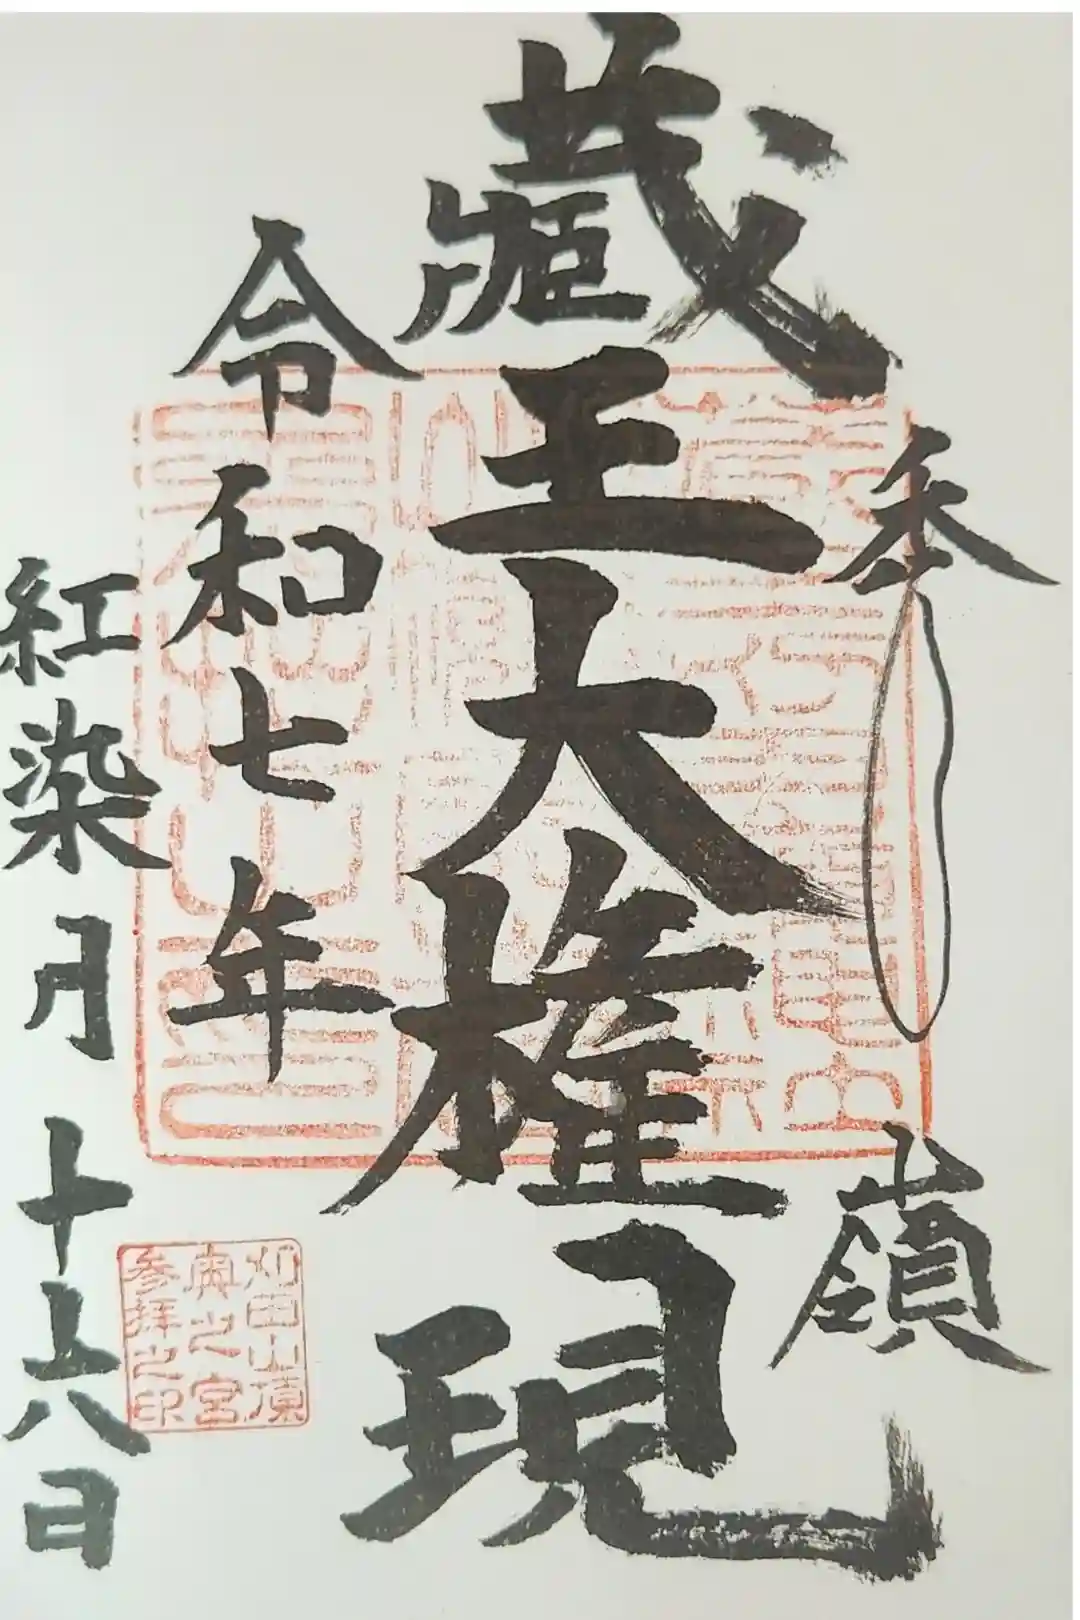 嶺
藏王大権現
令和七年
紅染月十六日
刈田山頂
奥之宮
参拝之印